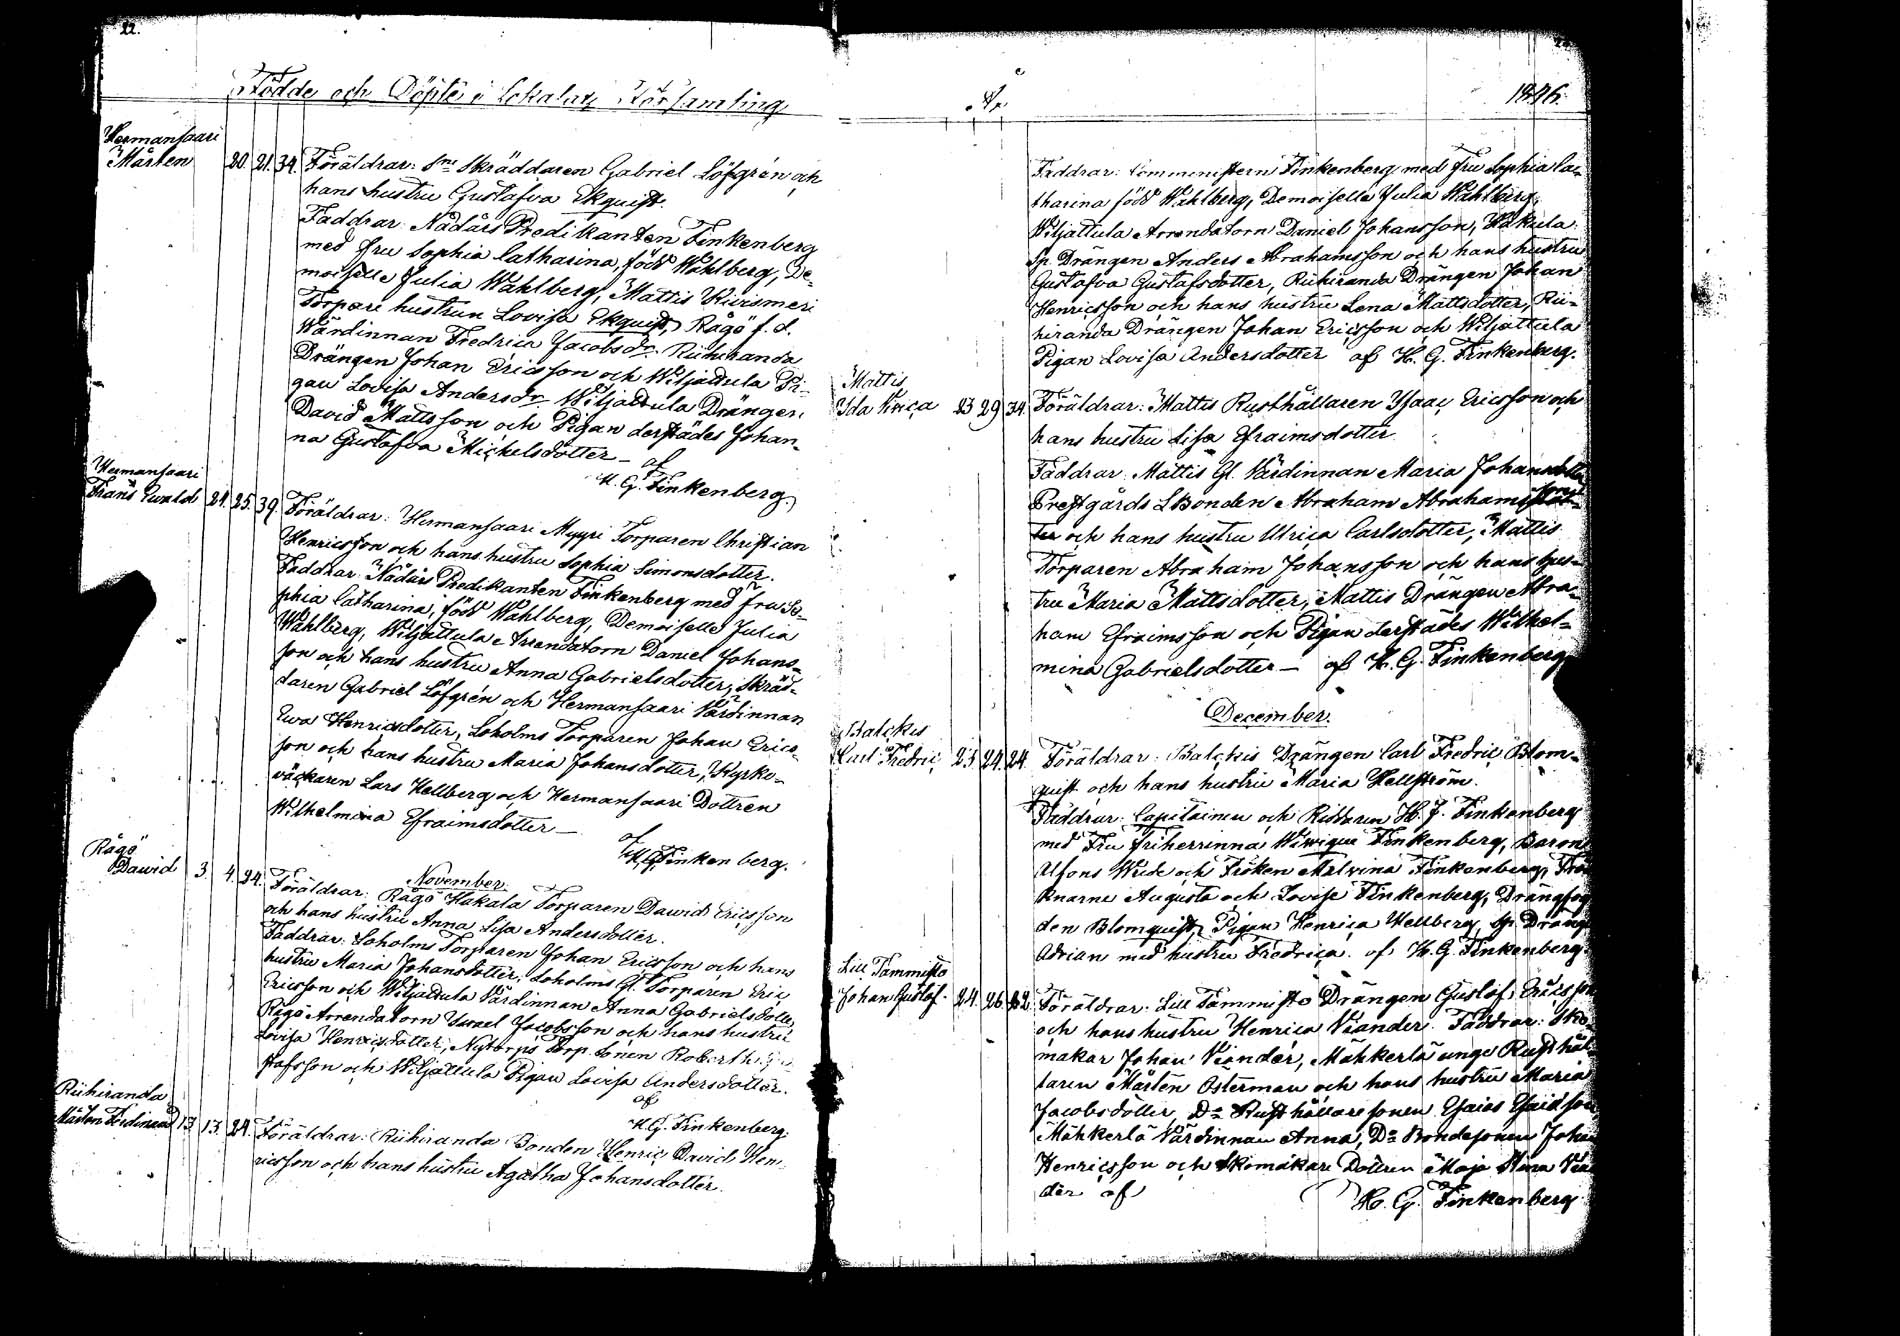 22.
Födde och Döpte i Lokalax Församling
Hermansaari
Mårten 20. 21. 34. Föräldrar: Sne Skräddaren Gabriel Löfgrén och
hans hustru Gustafva Ekquist.
Faddrar: Nådårs Predikanten Finkenberg
med fru Sophia Catharina, född Wahlberg, De-
moiselle Julia Wahlberg, Mattis Kivismeri
Torpare hustrun Lovisa Ekquist, Rågö f.d.
Wärdinnan Fredrica Jacobsdr. Riihiranda
Drängen Johan Ericsson och Wiljattula Pi-
gan Lovisa Andersdr Wiljattula Drängen
David Mattsson och Pigan derstädes Johan-
na Gustafva Mickelsdotter —
af
H. G. Finkenberg.
Hermansaari
Frans Ewald 24. 25. 39. Föräldrar: Hermansaari Myyri Torparen Christian
Henricsson och hans hustru Sophia Simonsdotter.
Faddrar: Nådårs Predikanten Finkenberg med fru So-
phia Catharina, född Wahlberg, Demoiselle Julia
Wahlberg, Wiljattula Arrendatorn Daniel Johans-
son och hans hustru Anna Gabrielsdotter, Skräd-
daren Gabriel Löfgrén och Hermansaari Värdinnan
Ewa Henricsdotter, Loholms Torparen Johan Erics-
son och hans hustru Maria Johansdotter, Kyrko-
väckaren Lars Hellberg och Hermansaari Dottren
Wilhelmina Efraimsdotter —
af
H. G. Finkenberg.
November.
Rågö
Dawid 3. 4. 24. Föräldrar: Rågö Hakala Torparen Dawid Ericsson
och hans hustru Anna Lisa Andersdotter.
Faddrar: Loholms Torparen Johan Ericsson och hans
hustru Maria Johansdotter, Loholms Gl. Torparen Eric
Ericsson och Wiljattula Värdinnan Anna Gabrielsdotter
Rågö Arrendatorn Israel Jacobsson och hans hustru
Lovisa Henricsdotter, Nytorps Torp. Sonen Robert Gu-
stafsson och Wiljattula Pigan Lovisa Andersdotter.
af
H. G. Finkenberg.
Riihiranda
Mårten Ferdinand 13. 13. 24. Föräldrar: Riihiranda Bonden Henric David Hen-
ricsson och hans hustru Agatha Johansdotter.
År 1846.
Faddrar: Comministern Finkenberg med fru Sophia Ca-
tharina född Wahlberg, Demoiselle Julia Wahlberg,
Wiljattula Arrendatorn Daniel Johansson, Hakula
Sp. Drängen Anders Abrahamsson och hans hustru
Gustafva Gustafsdotter, Riihiranda Drängen Johan
Henricsson och hans hustru Lena Mattsdotter, Rii-
hiranda Drängen Johan Ericsson och Wiljattula
Pigan Lovisa Andersdotter af H. G. Finkenberg.
Mattis
Ida Ulrica 23 29 34. Föräldrar: Mattis Rusthållaren Isaac Ericsson och
hans hustru Lisa Efraimsdotter
Faddrar: Mattis Gl. Värdinnan Maria Johansdotter
Prestgårds LBonden Abraham Abrahamsson
och hans hustru Ulrica Carlsdotter, Mattis
Torparen Abraham Johansson och hans hus-
tru Maria Mattsdotter, Mattis Drängen Abra-
ham Efraimsson och Pigan derstädes Wilhel-
mina Gabrielsdotter — af H. G. Finkenberg
December.
Balckis
Carl Fredric 23 24. 24. Föräldrar: Balckis Drängen Carl Fredric Blom-
quist och hans hustru Maria Hellström.
Faddrar: Capitainen och Riddaren H. J. Finkenberg
med Fru Friherrinna Finkenberg, Baron
Alfons Wrede och Fröken Malvina Finkenberg, Frö-
knarne Augusta och Lovise Finkenberg, Drängfog-
den Blomquist, Pigan Henrica Hellberg, Sp. Dräng
Adrian med hustru Fredrica. af H. G. Finkenberg.
Lill Tammisto
Johan Gustaf. 24. 26. 32. Föräldrar: Lill Tammisto Drängen Gustaf Ericsson
och hans hustru Henrica Viander. Faddrar: Sko-
makar Johan Viander, Mähkerlä unge Rusthål-
laren Mårten Österman och hans hustru Maria
Jacobsdotter, Do Rusthållaresonen Esaias Esaidson
Mähkerlä Värdinnan Anna, Do Bondesonen Johan
Henricsson och Skomakare Dottren Maja Stina Vian-
der af H. G. Finkenberg